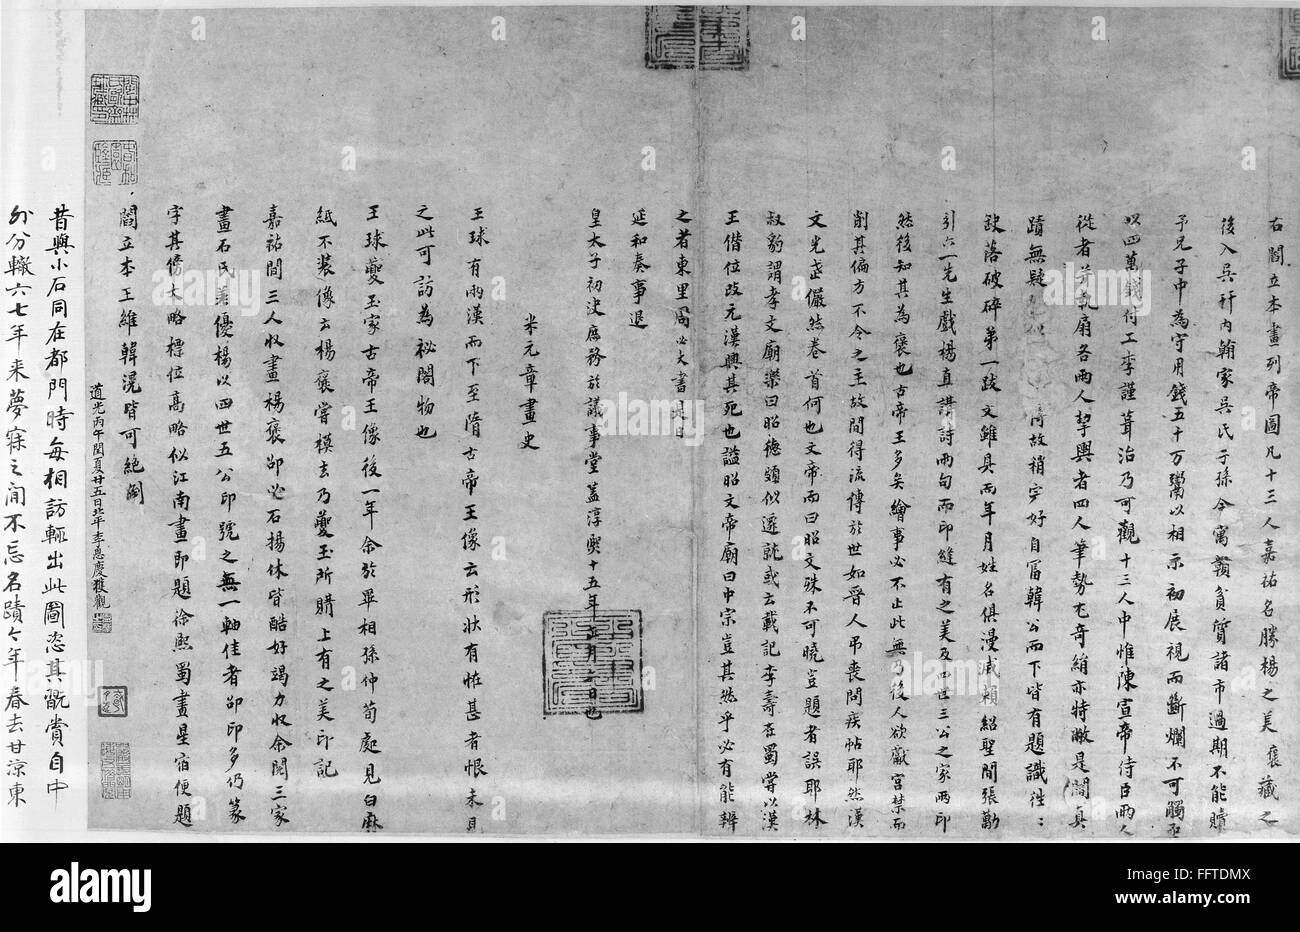 右閻立本畫列帝圖凡十三人嘉祐名勝楊之美褒藏之
後入吳幵內翰家吳氏子孫今寓贛貧質諸市過期不能贖
予兄子中為守用錢五十萬鬻以相示初展視而斷爛不可觸亟
以四萬錢付工李謹葺治乃可觀十三人中惟陳宣帝侍臣兩人
從者并執扇各兩人挈輿者四人筆勢尤奇絹亦特敝是閻真
蹟無疑 故稍完好自富韓公而下皆有題識往:
缺落破碎第一跋文雖具而年月姓名俱漫滅賴紹聖間張勱
引六一先生戲楊直講詩兩句而印縫有之美及四世三公之家兩印
然後知其為褒也古帝王多矣繪事必不止此無乃後人欲獻宮禁而
削其偏方不令之主故間得流傳於世如晉人弔喪問疾帖耶然漢
文光武儼然卷首何也文帝而曰昭文殊不可曉豈題者誤耶林
叔豹謂孝文廟樂曰昭德頌似遷就或云載記李壽在蜀嘗以漢
王僭位改元漢興其死也謚昭文帝廟曰中宗豈其然乎必有能辨
之者東里周必大書是日
延和奏事退
皇太子初決庶務於議事堂蓋淳熙十五年正月二日也
米元章畫史
王球有兩漢而下至隋古帝王像云形狀有怪甚者恨未見
之此可訪為祕閣物也
王球夔玉家古帝王像後一年余於畢相孫仲荀處見白麻
紙不裝像云楊褒嘗模去乃夔玉所購上有之美印記
嘉祐間三人收畫楊褒邵必石揚休皆酷好竭力收余閱三家
畫石氏差優楊以四世五公印號之無一軸佳者邵印多仍篆
字其傍大略標位高略似江南畫即題徐熙蜀畫星宿便題
閻立本王維韓滉皆可絕倒
道光丙午閏夏廿五日北平李恩慶獲觀
昔與小石同在都門時每相訪輒出此圖恣其翫賞自中
外分轍六七年來夢寐之間不忘名蹟今年春去甘涼東
a alamy
alamy
FFTDMX
www.alamy.com